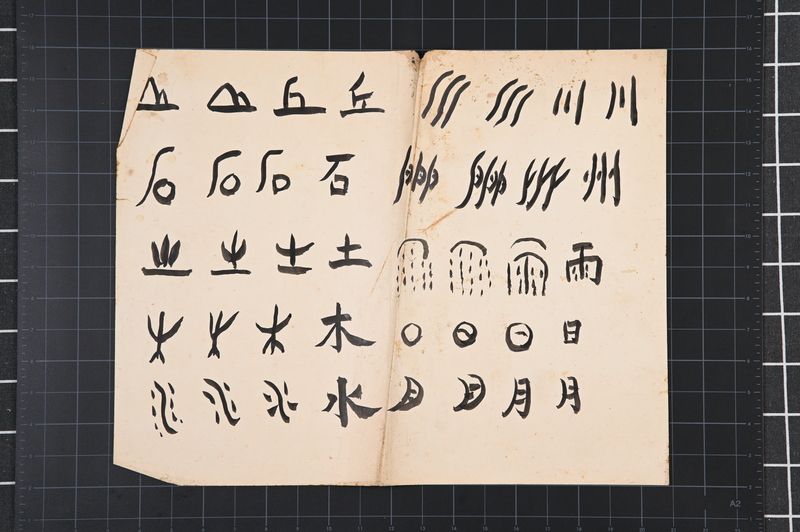 丘 川
石 州
土 雨
木 日
水 月
A2